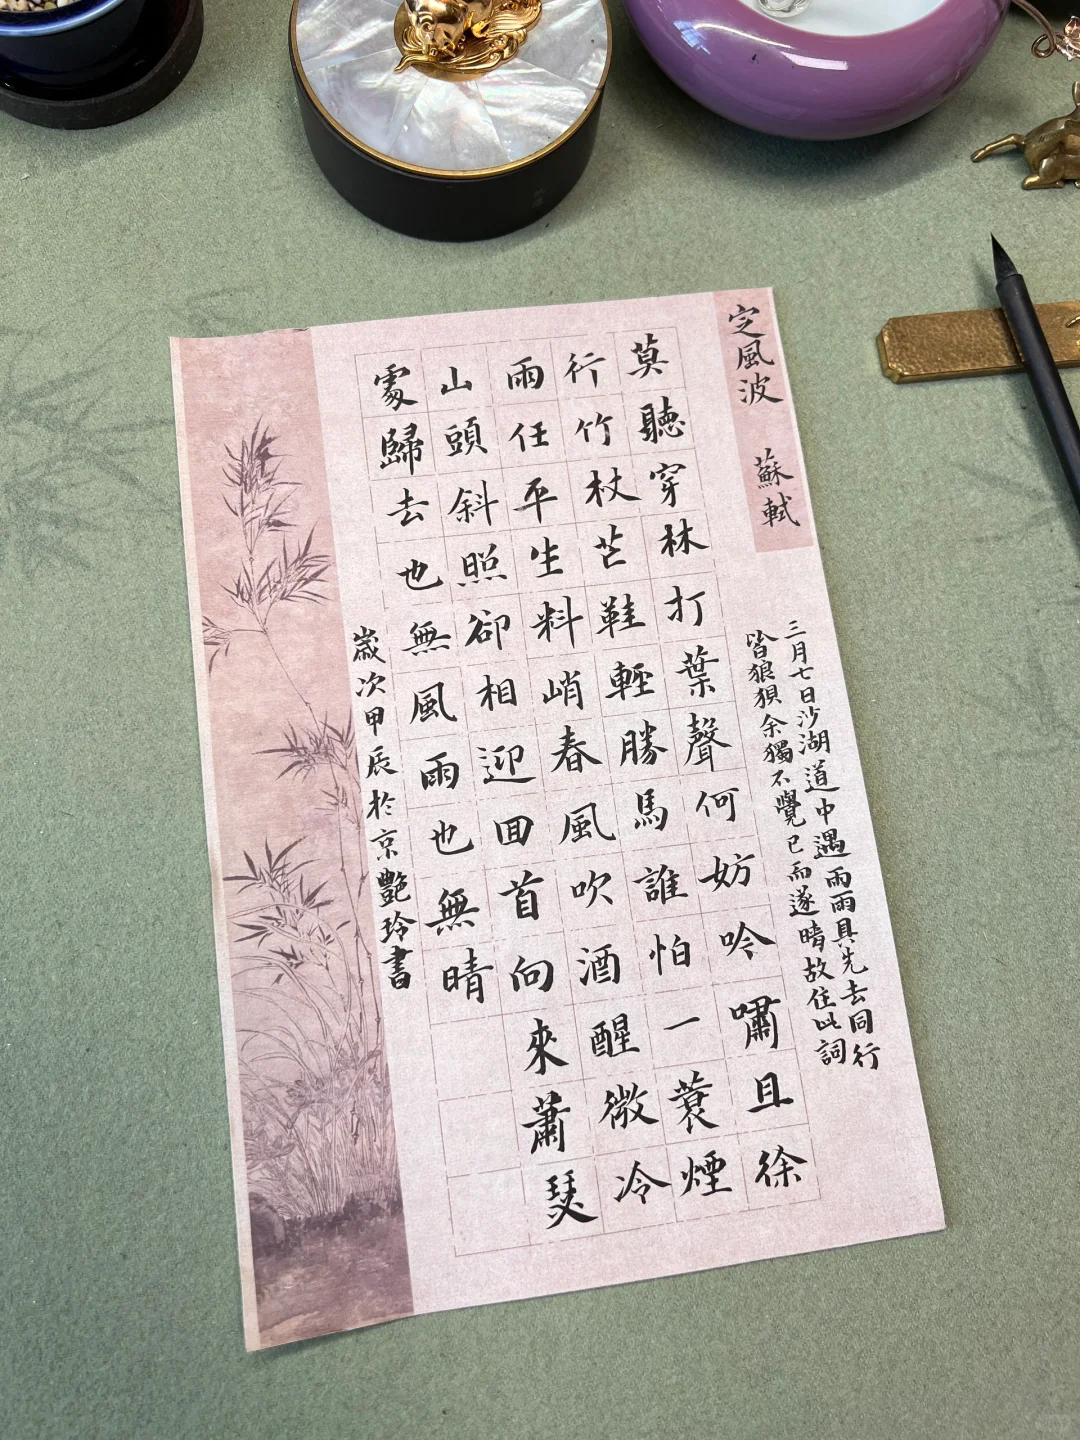 定風波 蘇軾
三月七日沙湖道中遇雨雨具先去同行
皆狼狽余獨不覺已而遂晴故作此詞
莫聽穿林打葉聲何妨吟嘯且徐
行竹杖芒鞋輕勝馬誰怕一蓑煙
雨任平生料峭春風吹酒醒微冷
山頭斜照卻相迎回首向來蕭瑟
處歸去也無風雨也無晴
歲次甲辰於京艷玲書